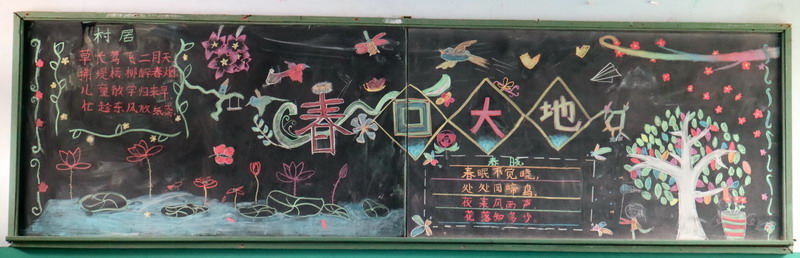 村居
草长莺飞二月天
拂堤杨柳醉春烟
儿童散学归来早
忙趁东风放纸鸢
春回大地
春晓
春眠不觉晓，
处处闻啼鸟，
夜来风雨声
花落知多少，